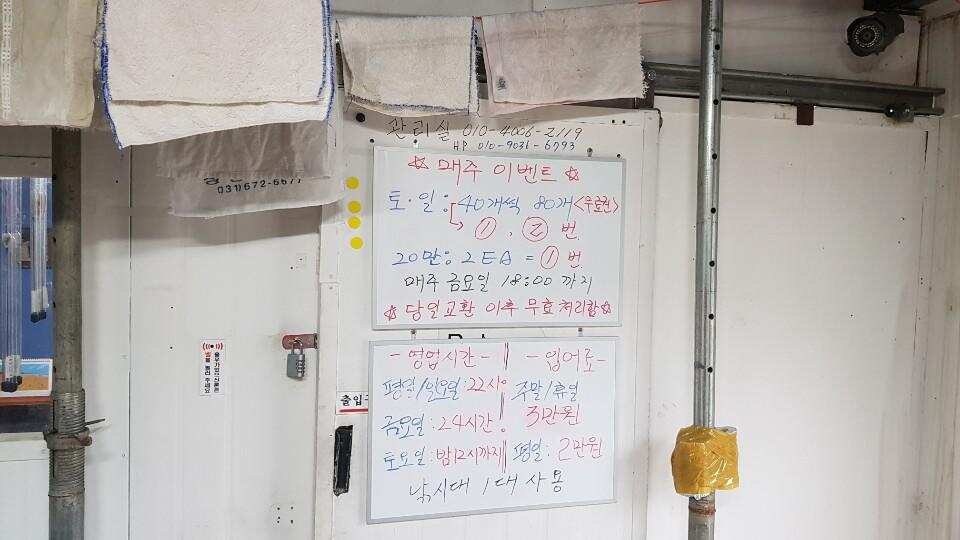 관리실 010-4006-2119
HP 010-9036-6793
031)672-6677
☆ 매주 이벤트 ☆
토·일: 40개씩 80개 <무료권>
→ ①, ② 번
20만: 2EA = ① 번
매주 금요일 18:00 까지
☆ 당일교환 이후 무효처리함 ☆
- 영업시간 - - 입어료 -
평일/일요일: 22시 주말/휴일
금요일: 24시간 3만원
토요일: 밤12시까지 평일: 2만원
낚시대 1대 사용
출입